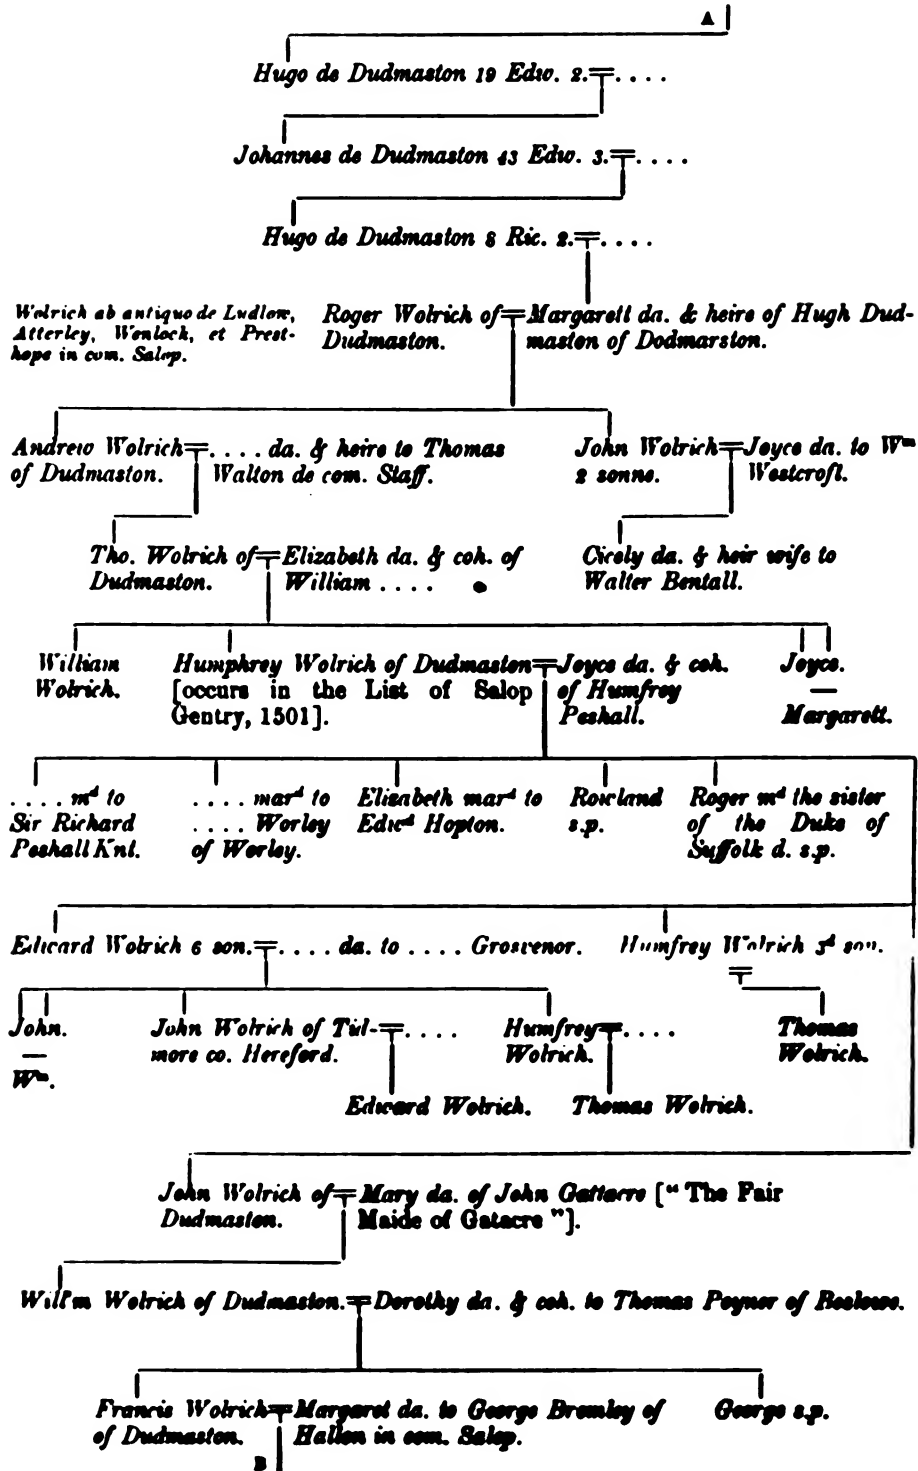 A
Hugo de Dudmaston 19 Edw. 2. = . . . .
Johannes de Dudmaston 43 Edw. 3. = . . . .
Hugo de Dudmaston 8 Ric. 2. = . . . .
Wolrich ab antiquo de Ludlow,
Atterley, Wenlock, et Prest-
hope in com. Salop.
Roger Wolrich of = Margarett da. & heire of Hugh Dud-
Dudmaston. maston of Dodmarston.
Andrew Wolrich = . . . . da. & heire to Thomas
of Dudmaston. Walton de com. Staff.
John Wolrich = Joyce da. to Wm
2 sonne. Westcroft.
Tho. Wolrich of = Elizabeth da. & coh. of
Dudmaston. William . . . .
Cicely da. & heir wife to
Walter Bentall.
William
Wolrich.
Humphrey Wolrich of Dudmaston = Joyce da. & coh.
[occurs in the List of Salop of Humfrey
Gentry, 1501]. Peshall.
Joyce.
—
Margarett.
. . . . md to
Sir Richard
Peshall Knt.
. . . . mard to
. . . . Worley
of Worley.
Elizabeth mard to
Edwd Hopton.
Rowland
s.p.
Roger md the sister
of the Duke of
Suffolk d. s.p.
Edward Wolrich 6 son. = . . . . da. to . . . . Grosvenor.
Humfrey Wolrich 3d son.
=
John.
—
Wm.
John Wolrich of Tid- = . . . .
more co. Hereford.
Humfrey = . . . .
Wolrich.
Thomas
Wolrich.
Edward Wolrich. Thomas Wolrich.
John Wolrich of = Mary da. of John Gattacre ["The Fair
Dudmaston. Maide of Gatacre"].
Will'm Wolrich of Dudmaston. = Dorothy da. & coh. to Thomas Poyner of Beslowe.
Francis Wolrich = Margaret da. to George Bromley of
of Dudmaston. Hallon in com. Salop.
George s.p.
B